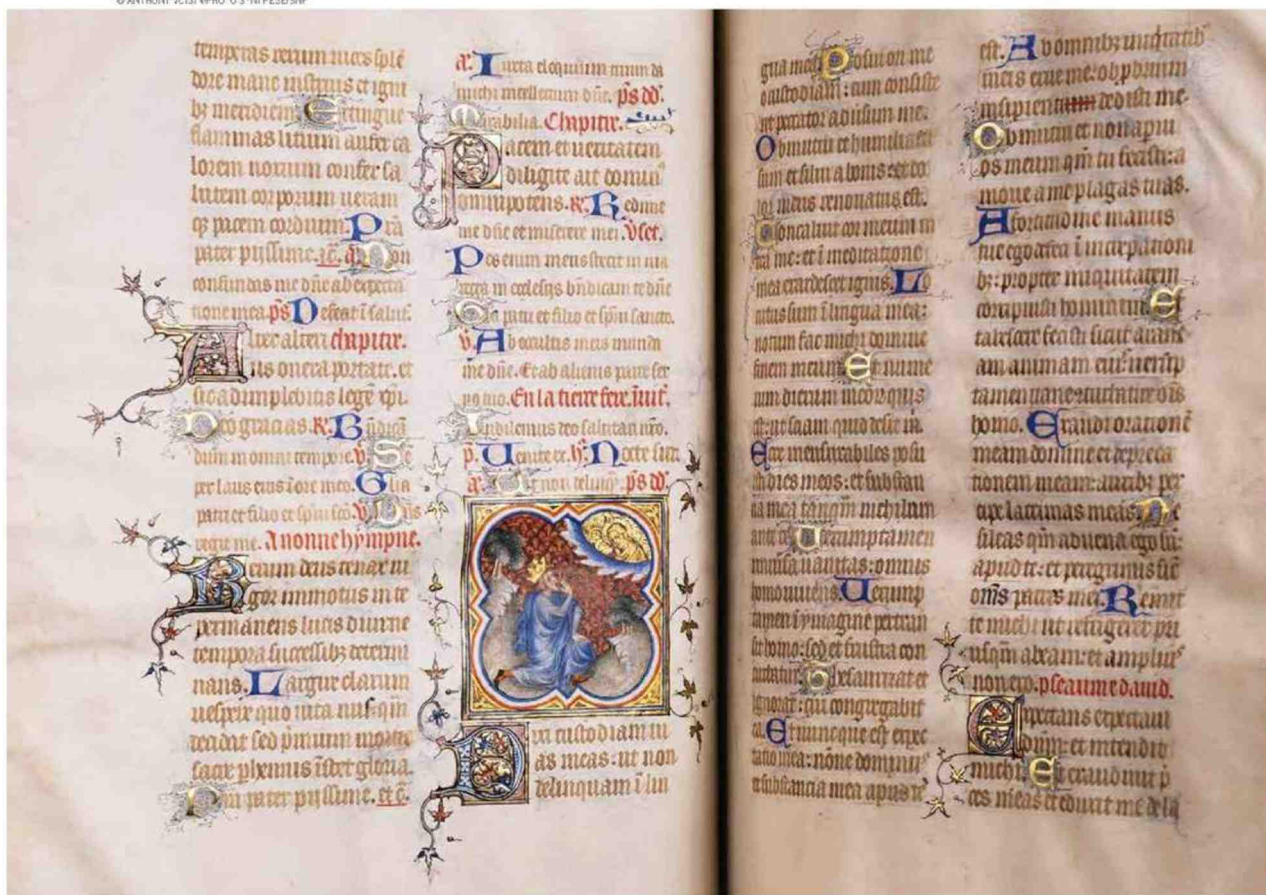 temperas rerum uices splē
dore mane instruis et igni
bꝫ meridiem Extingue
flammas litium aufer ca
lorem noxium confer sa
lutem corporum ueram
qꝫ pacem cordium. Prā
pater pijssime. ꝛc̄. a᷎. Non
confundas me dn̄e ab expecta
tione mea. p̄s Defecit ī salut̄.
Alter alteri chapitre.
ius onera portate. et
sic adimplebitis legē xp̄i.
Deo gracias. R᷎. Bn̄dicā
dn̄um in omni tempore. v᷎. Sē
per laus eius ī ore meo. Glīa
patri et filio et spūi scō. v᷎. Dn̄s
regit me. A nonne hympne.
Rerum deus tenax ui
gor immotus in te
permanens lucis diurne
tempora successibꝫ determi
nans. Largire clarum
uespere quo uita nusqm̄
decidat sed p̄mium mortis
sacre phennis īstet gloria.
Prā pater pijssime. et c̄.
a᷎. Iuxta eloquium tuum da
michi intellectum dn̄e. p̄s dd̄.
Mirabilia. Chapitre.
Pacem et ueritatem
diligite ait dominꝰ
omnipotens. R᷎. Redime
me dn̄e et miserere mei. Vset.
Pes enim meus stetit in uia
recta in ecclesijs bn̄dicam te dn̄e
Gla patri et filio et spūi sancto.
v᷎. Ab occultis meis munda
me dn̄e. Et ab alienis parce ser
uo tuo. En la tierce fere. iuit.
Iubilemus deo salutari nr̄o.
p̄. Uenite ex. h᷎. Nocte surg̅
a᷎. Ut non delinq̄. p̄s dd̄.
Dixi custodiam ui
as meas: ut non
delinquam ī lin
gua mea. Posui ori meo
custodiam: cum consiste
ret peccator aduersum me.
Obmutui et humiliatꝰ
sum et silui a bonis: et do
lor meus renouatus est.
Concaluit cor meum in
tra me: et ī meditatione
mea exardescet ignis. Lo
cutus sum ī lingua mea:
notum fac michi domine
finem meum Et nume
rum dierum meorꝫ quis
est: ut sciam quid desit m̄.
Ecce mensurabiles posu
isti dies meos: et substan
tia mea tanqm̄ nichilum
ante te Uerumptamen
uniuersa uanitas: omnis
homo uiuens. Uerump
tamen ī ymagine pertran
sit homo: sed et frustra con
turbatur. Thesaurizat et
ignorat: cui congregabit
ea. Et nunc que est expec
tatio mea: nōne dominꝰ
et substancia mea apud te
est. Ab omnibꝫ iniquitatibꝰ
meis erue me: obp̄brium
insipienti dedisti me.
Obmutui et non apui
os meum qm̄ tu fecisti: a
moue a me plagas tuas.
A fortitudine manus
tue ego defeci ī increpationi
bꝫ: propter iniquitatem
corripuisti hominem Et
tabescere fecisti sicut arane
am animam eiꝰ: uerūp
tamen uane ꝯturbatur ōis
homo. Exaudi orationē
meam domine et depreca
tionem meam: auribꝫ per
cipe lacrimas meas. Ne
sileas qm̄ aduena ego sū:
apud te: et peregrinus sic̄
om̄s patres mei. Remit
te michi ut refrigerer pri
usqm̄ abeam: et ampliusꝰ
non ero. pseaume dauid.
Expectans expectaui
dōm: et intendit
michi. Et exaudiuit p̄
ces meas et eduxit me de la